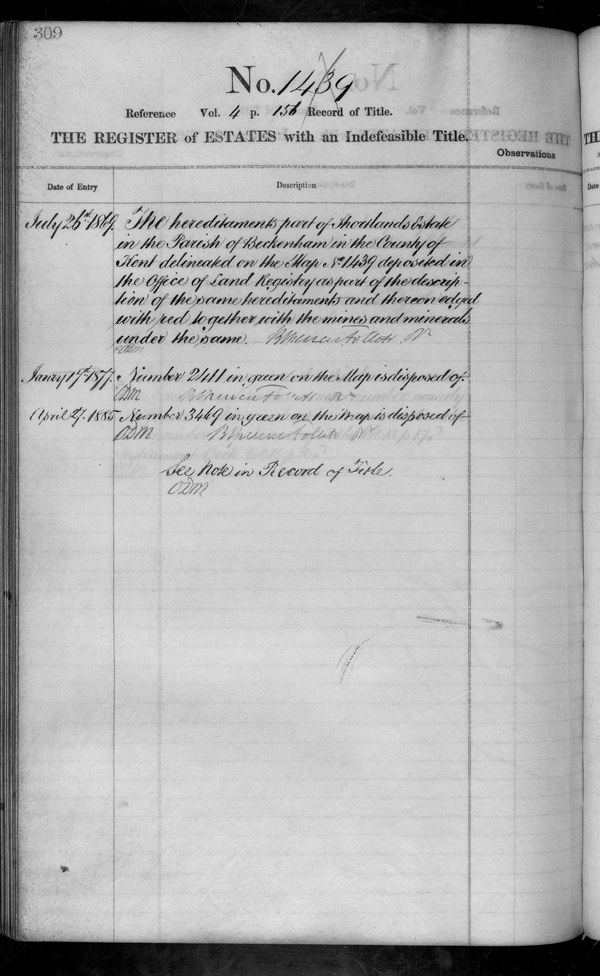 309
No. 1439
Reference Vol. 4 p. 156 Record of Title.
THE REGISTER of ESTATES with an Indefeasible Title.
Observations
Date of Entry
Description
July 26th 1869. The hereditaments part of Shortlands Estate
in the Parish of Beckenham in the County of
Kent delineated on the Map No. 1439 deposited in
the Office of Land Registry as part of the descrip-
tion of the same hereditaments and thereon edged
with red together with the mines and minerals
under the same.
Janry 17th 1877. Number 2411 in green on the Map is disposed of.
ODM
April 27. 1885. Number 3469 in green on the Map is disposed of
ODM
See Note in Record of Title.
ODM
TH
Date